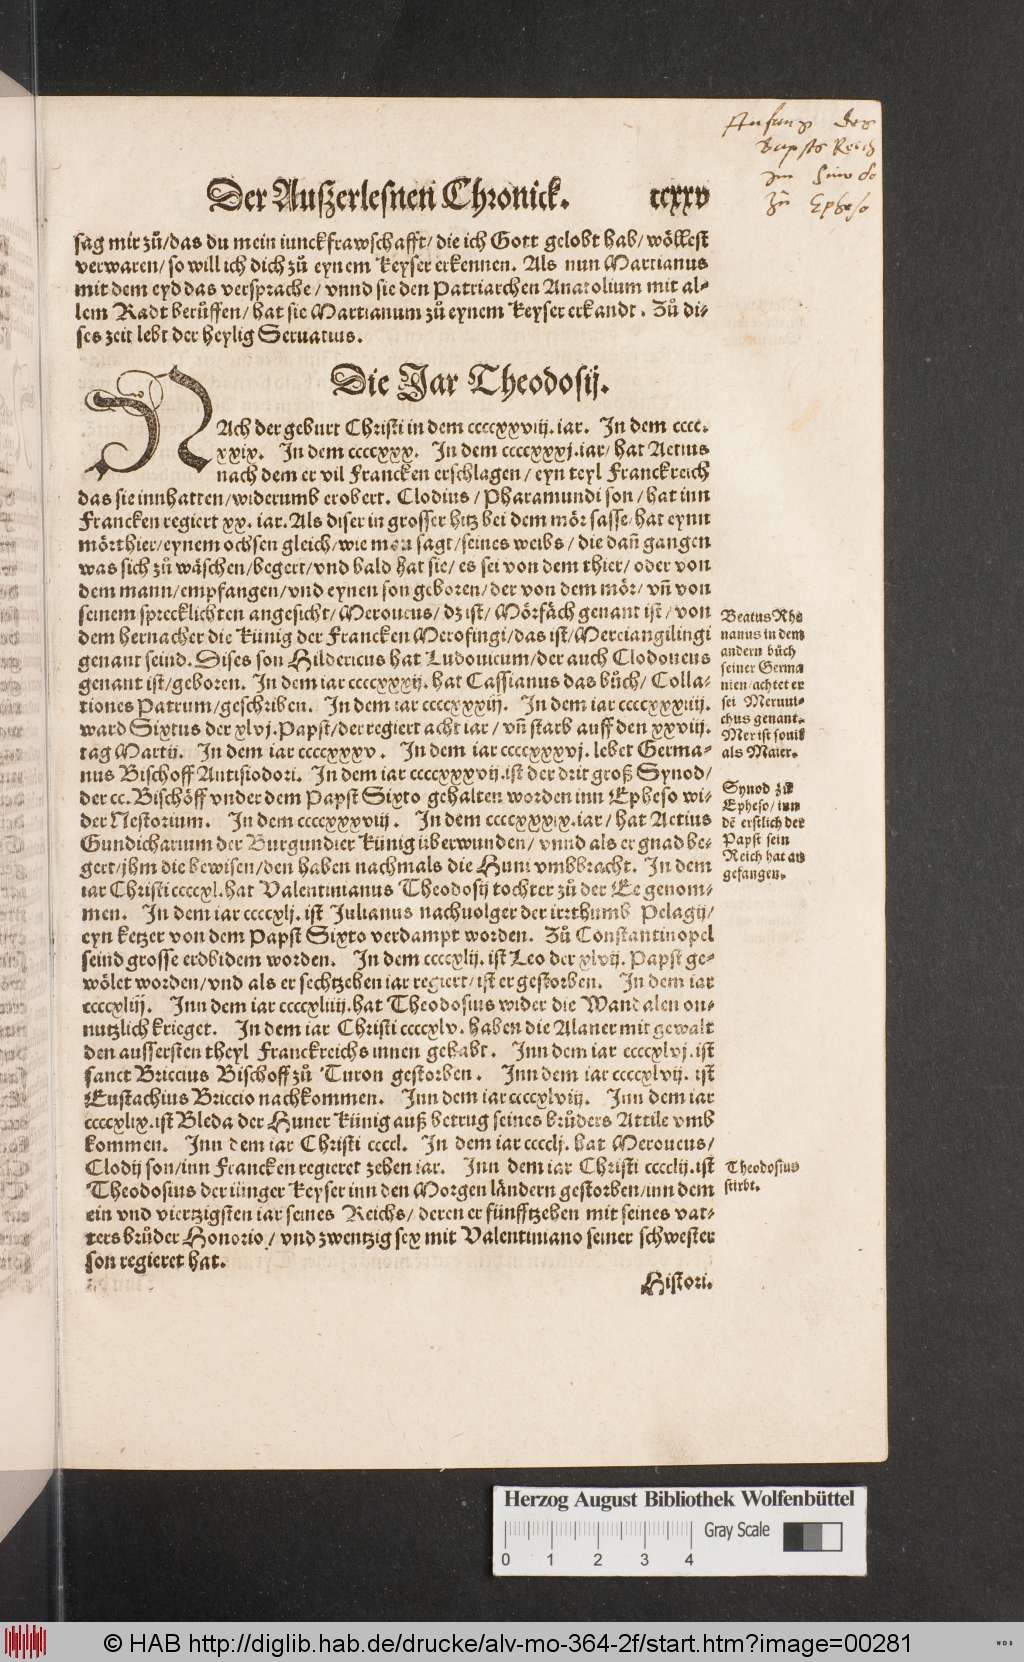 Anfang des
Bapsts Reich
im Sinodo
zů Epheso
Der Außerlesnen Chronick. ccxxv
sag mir zů/das du mein iunckfrawschafft/die ich Gott gelobt hab/wöllest
verwaren/so will ich dich zů eynem Keyser erkennen. Als nun Martianus
mit dem eyd das versprache/vnnd sie den Patriarchen Anatolium mit al-
lem Radt berůffen/hat sie Martianum zů eynem Keyser erkandt. Zů di-
ses zeit lebt der heylig Seruatius.
Die Jar Theodosij.
NAch der geburt Christi in dem ccccxxviij. iar. In dem cccc.
xxix. In dem ccccxxx. In dem ccccxxxj. iar/hat Aetius
nach dem er vil Francken erschlagen/eyn teyl Franckreich
das sie innhatten/widerumb erobert. Clodius/Pharamundi son/hat inn
Francken regiert xx. iar. Als diser in grosser hitz bei dem mör sasse/hat eynn
mörthier/eynem ochsen gleich/wie man sagt/seines weibs/die dañ gangen
was sich zů wäschen/begert/vnd bald hat sie/es sei von dem thier/oder von
dem mann/empfangen/vnd eynen son geboren/der von dem mör/vñ von
seinem sprecklichten angesicht/Meroueus/dz ist/Mörfäch genant ist/von
dem hernacher die Künig der Francken Merofingi/das ist/Merciangilingi
genant seind. Dises son Hildericus hat Ludouicum/der auch Clodoueus
genant ist/geboren. In dem iar ccccxxxij. hat Cassianus das bůch/Colla-
tiones Patrum/geschriben. In dem iar ccccxxxiij. In dem iar ccccxxxiiij.
ward Sixtus der xlvj. Papst/der regiert acht iar/vñ starb auff den xxviij.
tag Martij. In dem iar ccccxxxv. In dem iar ccccxxxvj. lebet Germa-
nus Bischoff Antisiodori. In dem iar ccccxxxvij. ist der drit groß Synod/
der cc. Bischöff vnder dem Papst Sixto gehalten worden inn Epheso wi-
der Nestorium. In dem ccccxxxviij. In dem ccccxxxix. iar/hat Aetius
Gundicharium der Burgundier Künig überwunden/vnnd als er gnad be-
gert/jhm die bewisen/den haben nachmals die Huni vmbbracht. In dem
iar Christi ccccxl. hat Valentinianus Theodosij tochter zů der Ee genom-
men. In dem iar ccccxlj. ist Julianus nachuolger der irrthumb Pelagij/
eyn ketzer von dem Papst Sixto verdampt worden. Zů Constantinopel
seind grosse erdbidem worden. In dem ccccxlij. ist Leo der xlvij. Papst ge-
wölet worden/vnd als er sechtzehen iar regiert/ist er gestorben. In dem iar
ccccxliij. Inn dem iar ccccxliiij. hat Theodosius wider die Wandalen on-
nutzlich krieget. In dem iar Christi ccccxlv. haben die Alaner mit gewalt
den aussersten theyl Franckreichs innen gehabt. Inn dem iar ccccxlvj. ist
sanct Briccius Bischoff zů Turon gestorben. Inn dem iar ccccxlvij. ist
Eustachius Briccio nachkommen. Inn dem iar ccccxlviij. Inn dem iar
ccccxlix. ist Bleda der Huner Künig auß betrug seines brůders Attile vmb
kommen. Inn dem iar Christi ccccl. In dem iar ccccli. hat Meroueus/
Clodij son/inn Francken regieret zehen iar. Inn dem iar Christi cccclij. ist
Theodosius der iünger Keyser inn den Morgen ländern gestorben/inn dem
ein vnd viertzigsten iar seines Reichs/deren er fünfftzehen mit seines vat-
ters brůder Honorio/vnd zwentzig sex mit Valentiniano seiner schwester
son regieret hat.
Histori.
Beatus Rhe
nanus in dem
andern bůch
seiner Germa
nien/achtet er
sei Meruui-
chus genant.
Mer ist souil
als Maier.
Synod zů
Epheso/inn
dē erstlich der
Papst sein
Reich hat an
gefangen.
Theodosius
stirbt.
Herzog August Bibliothek Wolfenbüttel
Gray Scale
0 1 2 3 4
© HAB http://diglib.hab.de/drucke/alv-mo-364-2f/start.htm?image=00281